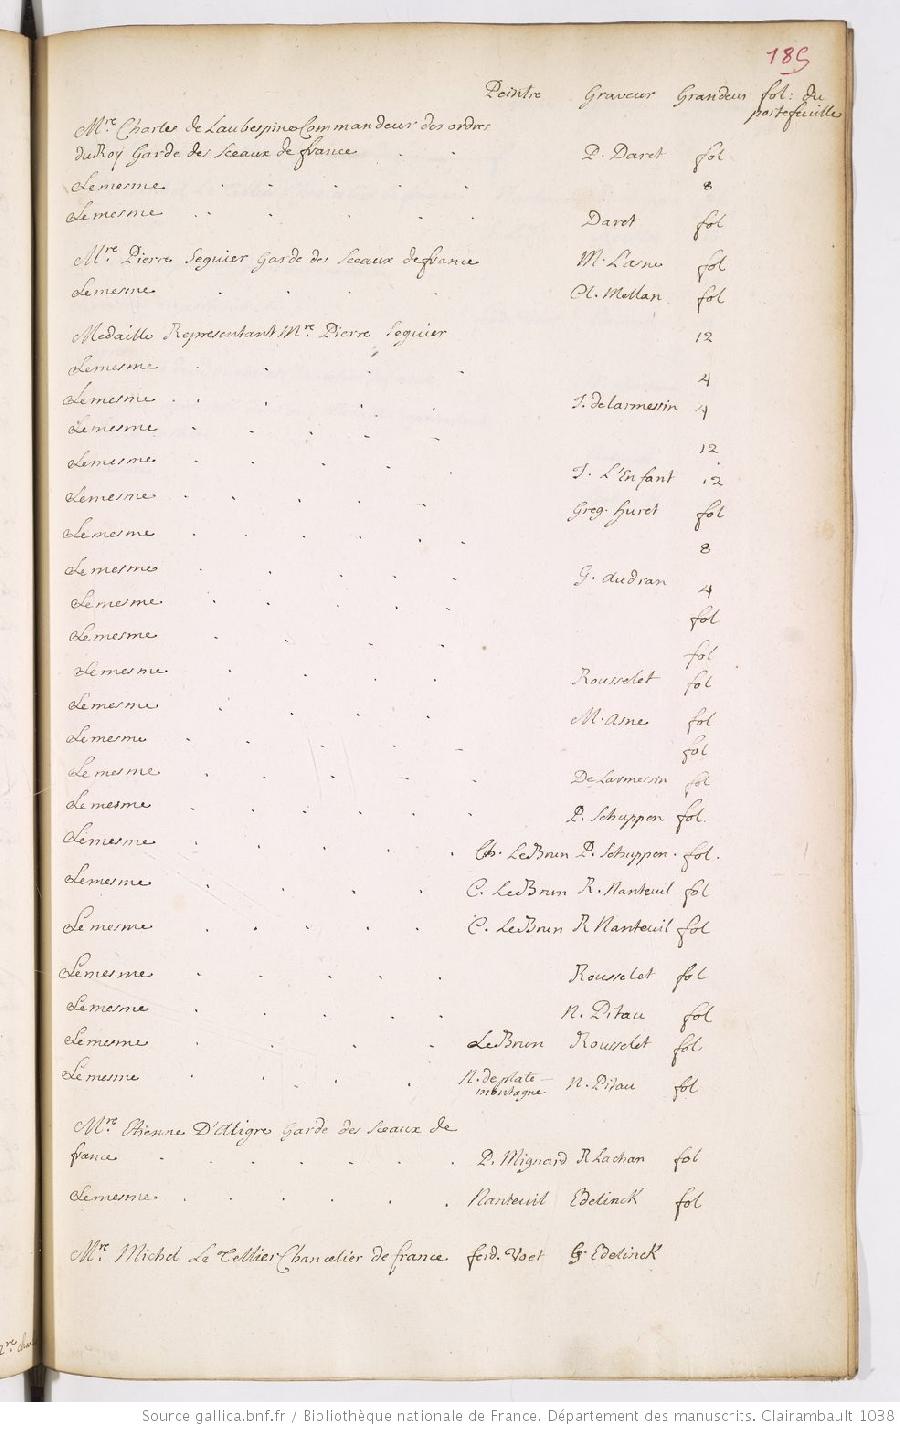 185
Peintre Graveur Grandeur fol: du
portefeuille
Mre. Charles de Laubespine Commandeur des ordres
du Roy Garde des Sceaux de france . . P. Daret fol
Le mesme . . . . . 8
Le mesme . . . . . Daret fol
Mre. Pierre Seguier Garde des Sceaux de france M. Lasne fol
Le mesme . . . Cl. Mellan fol
Medaille Representant Mre. Pierre Seguier 12
Le mesme . . . . 4
Le mesme . . . . . J. de Larmessin 4
Le mesme . . . . . 12
Le mesme . . . . J. L'Enfant 12
Le mesme . . . . . Greg. Huret fol
Le mesme . . . . . 8
Le mesme . . . . G. Audran 4
Le mesme . . . . fol
Le mesme . . . . fol
Le mesme . . . . Rousselet fol
Le mesme . . . . M. Asne fol
Le mesme . . . . fol
Le mesme . . . . De Larmessin fol
Le mesme . . . . . P. Schuppen fol.
Le mesme . . . . . Ch. Le Brun P. Schuppen . fol .
Le mesme . . . . C. Le Brun R. Nanteuil fol
Le mesme . . . . C. Le Brun R Nanteuil fol
Le mesme . . . . . Rousselet fol
Le mesme . . . . N. Pitau fol
Le mesme . . . . Le Brun Rousselet fol
Le mesme . . . . N. de plate- N. Pitau fol
montagne
Mre. Etienne D'Aligre Garde des Sceaux de
france . . . . . . P. Mignard R Lochan fol
Le mesme . . . . . . Nanteuil Edelinck fol
Mre. Michel Le Tellier Chancelier de france ferd. Voet G. Edelinck
Source gallica.bnf.fr / Bibliothèque nationale de France. Département des manuscrits. Clairambault 1038